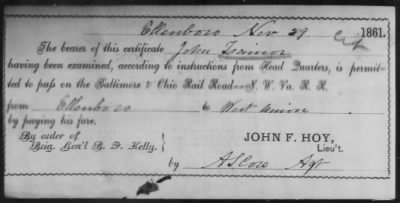 Ellenboro Nov 29 1861.
The bearer of this certificate John Trainor
having been examined, according to instructions from Head Quarters, is permit-
ted to pass on the Baltimore & Ohio Rail Road--N. W. Va. R. R.
from Ellenboro to West Union
by paying his fare.
By order of
Brig. Gen'l B. F. Kelly.
JOHN F. HOY,
Lieu't.
by Agt